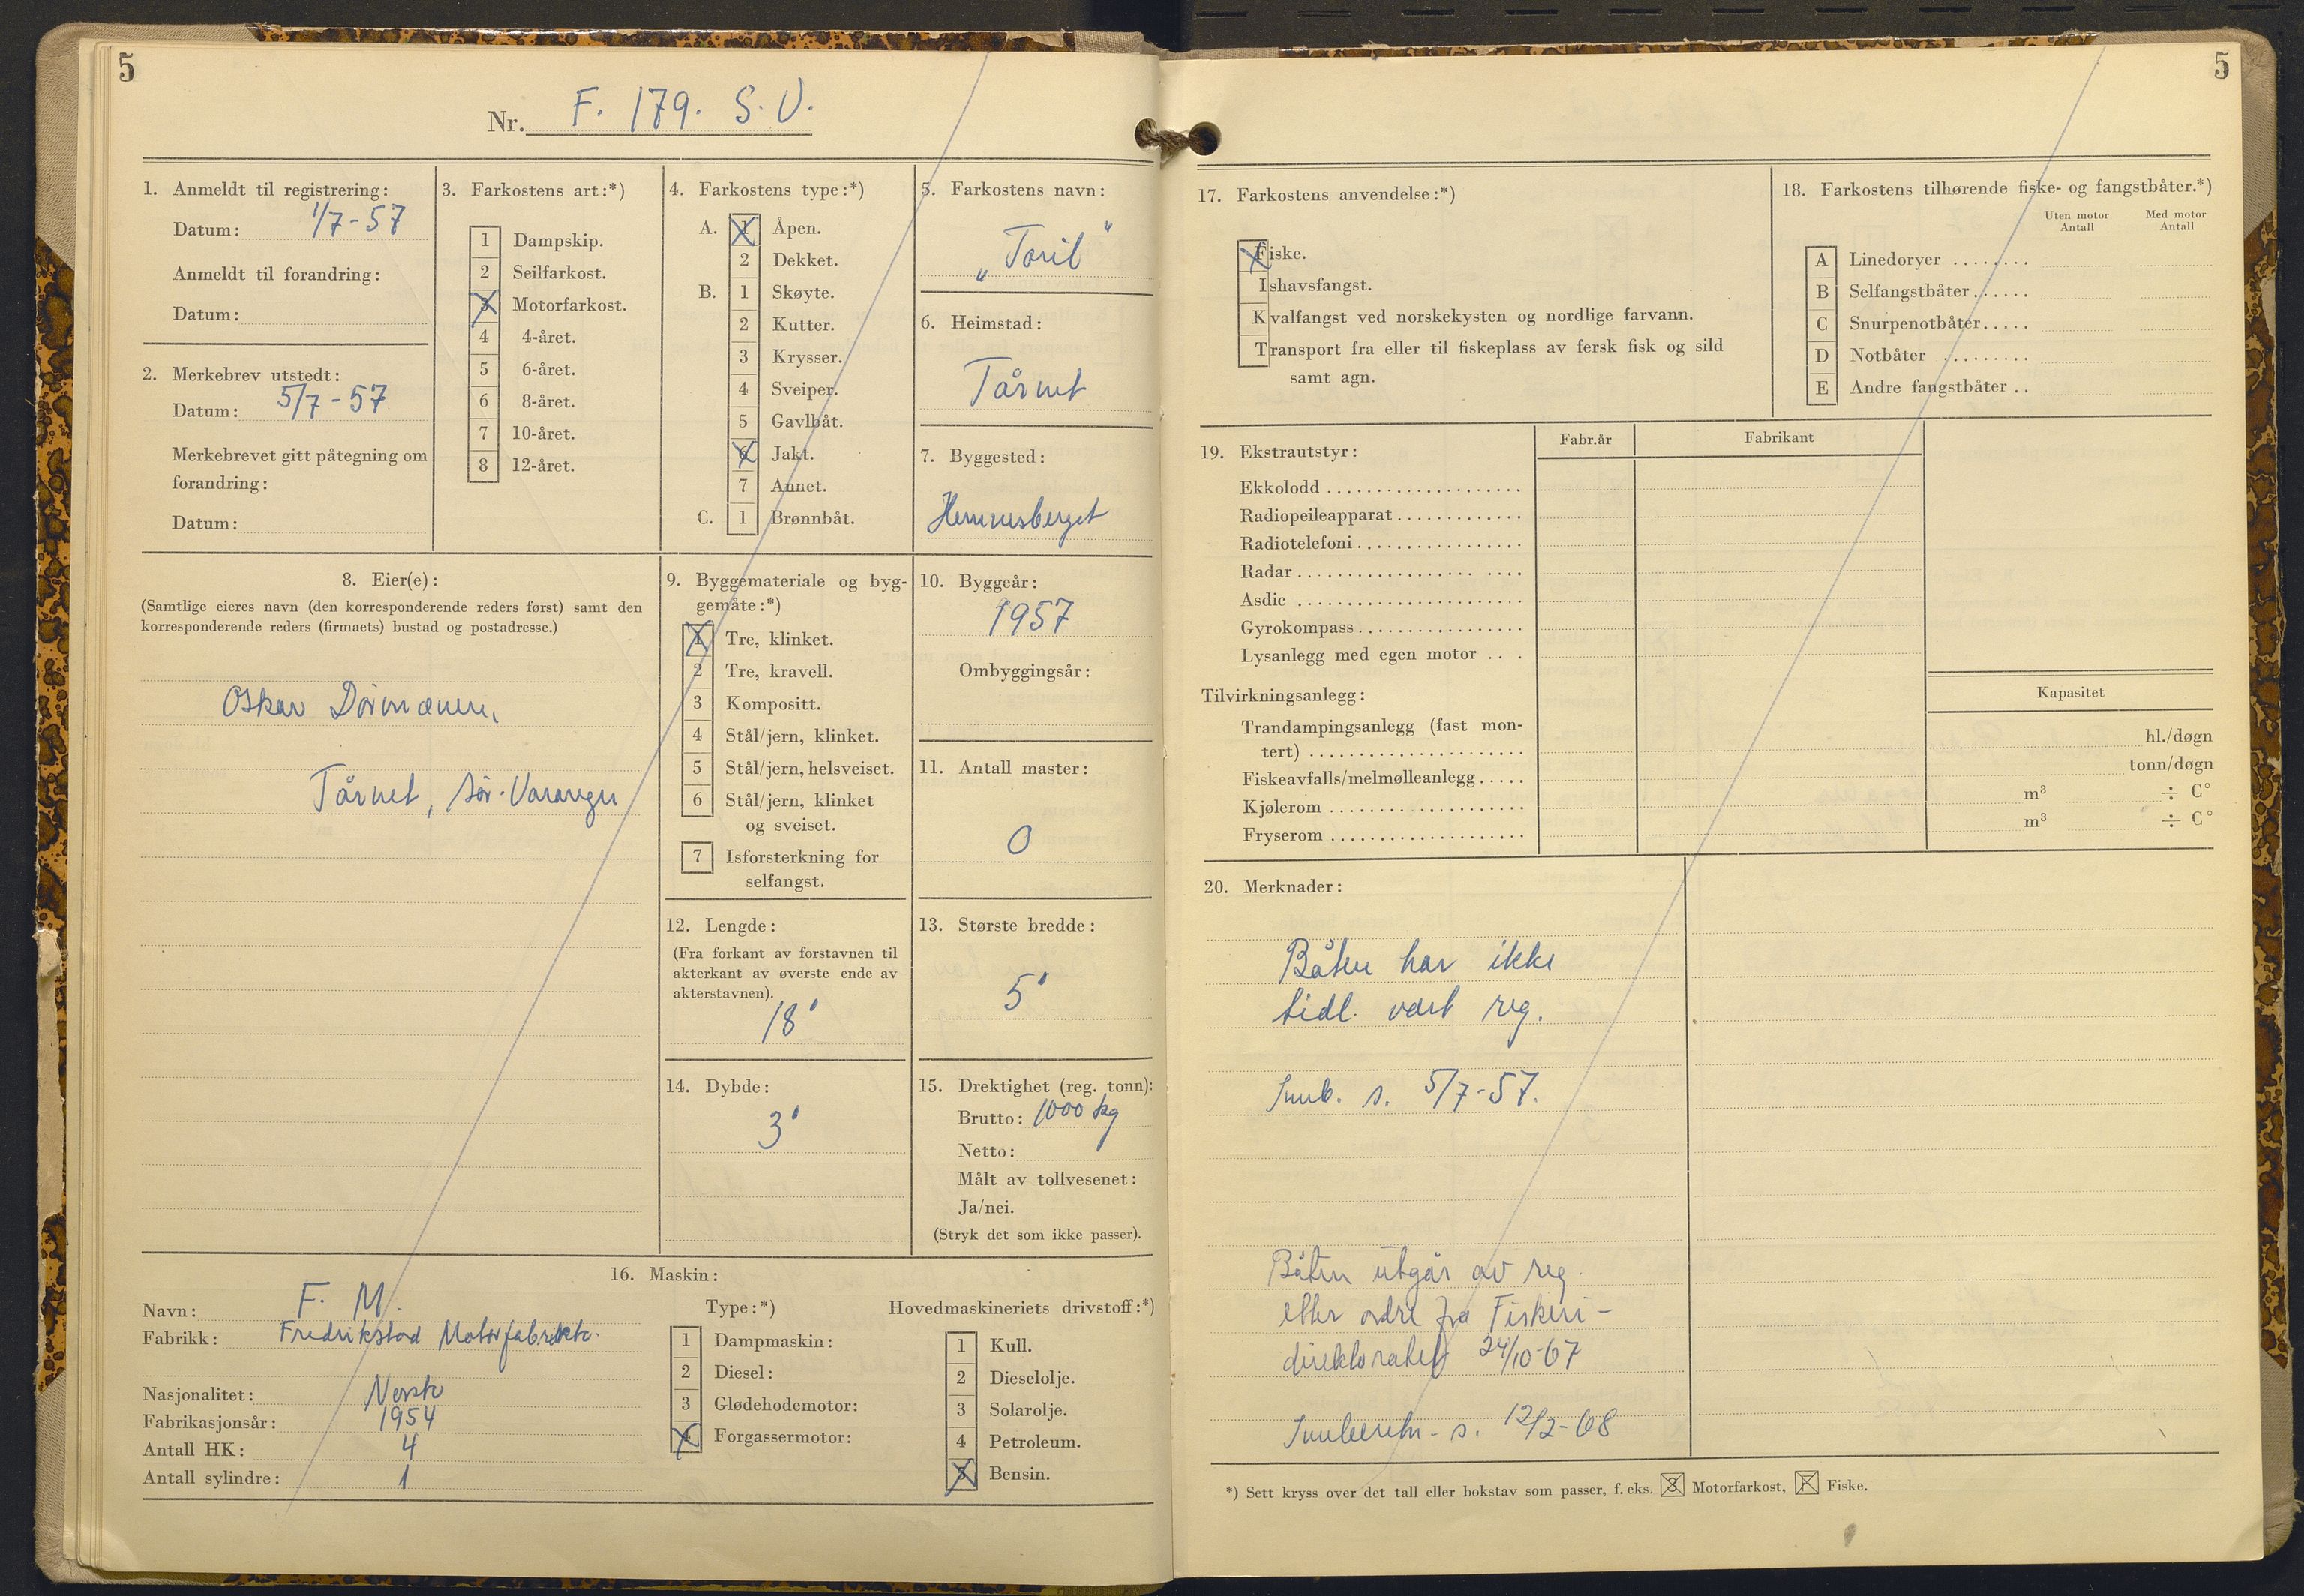 5
Nr. F. 179. S.V.
1. Anmeldt til registrering:
Datum: 1/7-57
Anmeldt til forandring:
Datum:
2. Merkebrev utstedt:
Datum: 5/7-57
Merkebrevet gitt påtegning om
forandring:
Datum:
3. Farkostens art:*)
1 Dampskip.
2 Seilfarkost.
3 Motorfarkost.
4 4-året.
5 6-året.
6 8-året.
7 10-året.
8 12-året.
4. Farkostens type:*)
A. 1 Åpen.
2 Dekket.
B. 1 Skøyte.
2 Kutter.
3 Krysser.
4 Sveiper.
5 Gavlbåt.
6 Jakt.
7 Annet.
C. 1 Brønnbåt.
5. Farkostens navn:
„Toril"
6. Heimstad:
Tårnet
7. Byggested:
Hemnesberget
8. Eier(e):
(Samtlige eieres navn (den korresponderende reders først) samt den
korresponderende reders (firmaets) bustad og postadresse.)
Oskar
Tårnet, Sør-Varanger
9. Byggemateriale og byg-
gemåte:*)
1 Tre, klinket.
2 Tre, kravell.
3 Kompositt.
4 Stål/jern, klinket.
5 Stål/jern, helsveiset.
6 Stål/jern, klinket
og sveiset.
7 Isforsterkning for
selfangst.
10. Byggeår:
1957
Ombyggingsår:
11. Antall master:
0
12. Lengde:
(Fra forkant av forstavnen til
akterkant av øverste ende av
akterstavnen).
18'
13. Største bredde:
5'
14. Dybde:
3'
15. Drektighet (reg. tonn):
Brutto: 1000 kg
Netto:
Målt av tollvesenet:
Ja/nei.
(Stryk det som ikke passer).
16. Maskin:
Navn: F. M.
Fabrikk: Fredrikstad Motorfabrikk.
Nasjonalitet: Norsk
Fabrikasjonsår: 1954
Antall HK: 4
Antall sylindre: 1
Type:*)
1 Dampmaskin:
2 Diesel:
3 Glødehodemotor:
4 Forgassermotor:
Hovedmaskineriets drivstoff:*)
1 Kull.
2 Dieselolje.
3 Solarolje.
4 Petroleum.
5 Bensin.
5
17. Farkostens anvendelse:*)
Fiske.
Ishavsfangst.
Kvalfangst ved norskekysten og nordlige farvann.
Transport fra eller til fiskeplass av fersk fisk og sild
samt agn.
18. Farkostens tilhørende fiske- og fangstbåter.*)
Uten motor Med motor
Antall Antall
A Linedoryer ........
B Selfangstbåter......
C Snurpenotbåter.....
D Notbåter .........
E Andre fangstbåter ..
19. Ekstrautstyr:
Fabr.år Fabrikant
Ekkolodd ....................
Radiopeileapparat .............
Radiotelefoni .................
Radar .......................
Asdic .......................
Gyrokompass .................
Lysanlegg med egen motor ....
Tilvirkningsanlegg: Kapasitet
Trandampingsanlegg (fast mon-
tert) ..................... hl./døgn
Fiskeavfalls/melmølleanlegg ..... tonn/døgn
Kjølerom .................... m³ ÷ C°
Fryserom .................... m³ ÷ C°
20. Merknader:
Båten har ikke
tidl. vært reg.
Innb. s. 5/7-57.
Båten utgår av reg.
etter ordre fra Fiskeri-
direktoratet 24/10-67
Innberetn. s. 12/2-68
*) Sett kryss over det tall eller bokstav som passer, f. eks. 3 Motorfarkost, F Fiske.